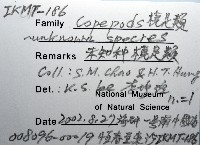 IKMT-186
Family Copepods 橈足類
unknown species
Remarks 未知种橈足類
Coll: S.M. Chao & H.T. Hung
Det.: K.S. Lee
National Museum
of Natural Science n=1
Date 2002.8.27
008096-00019 恒春 IKMT-186